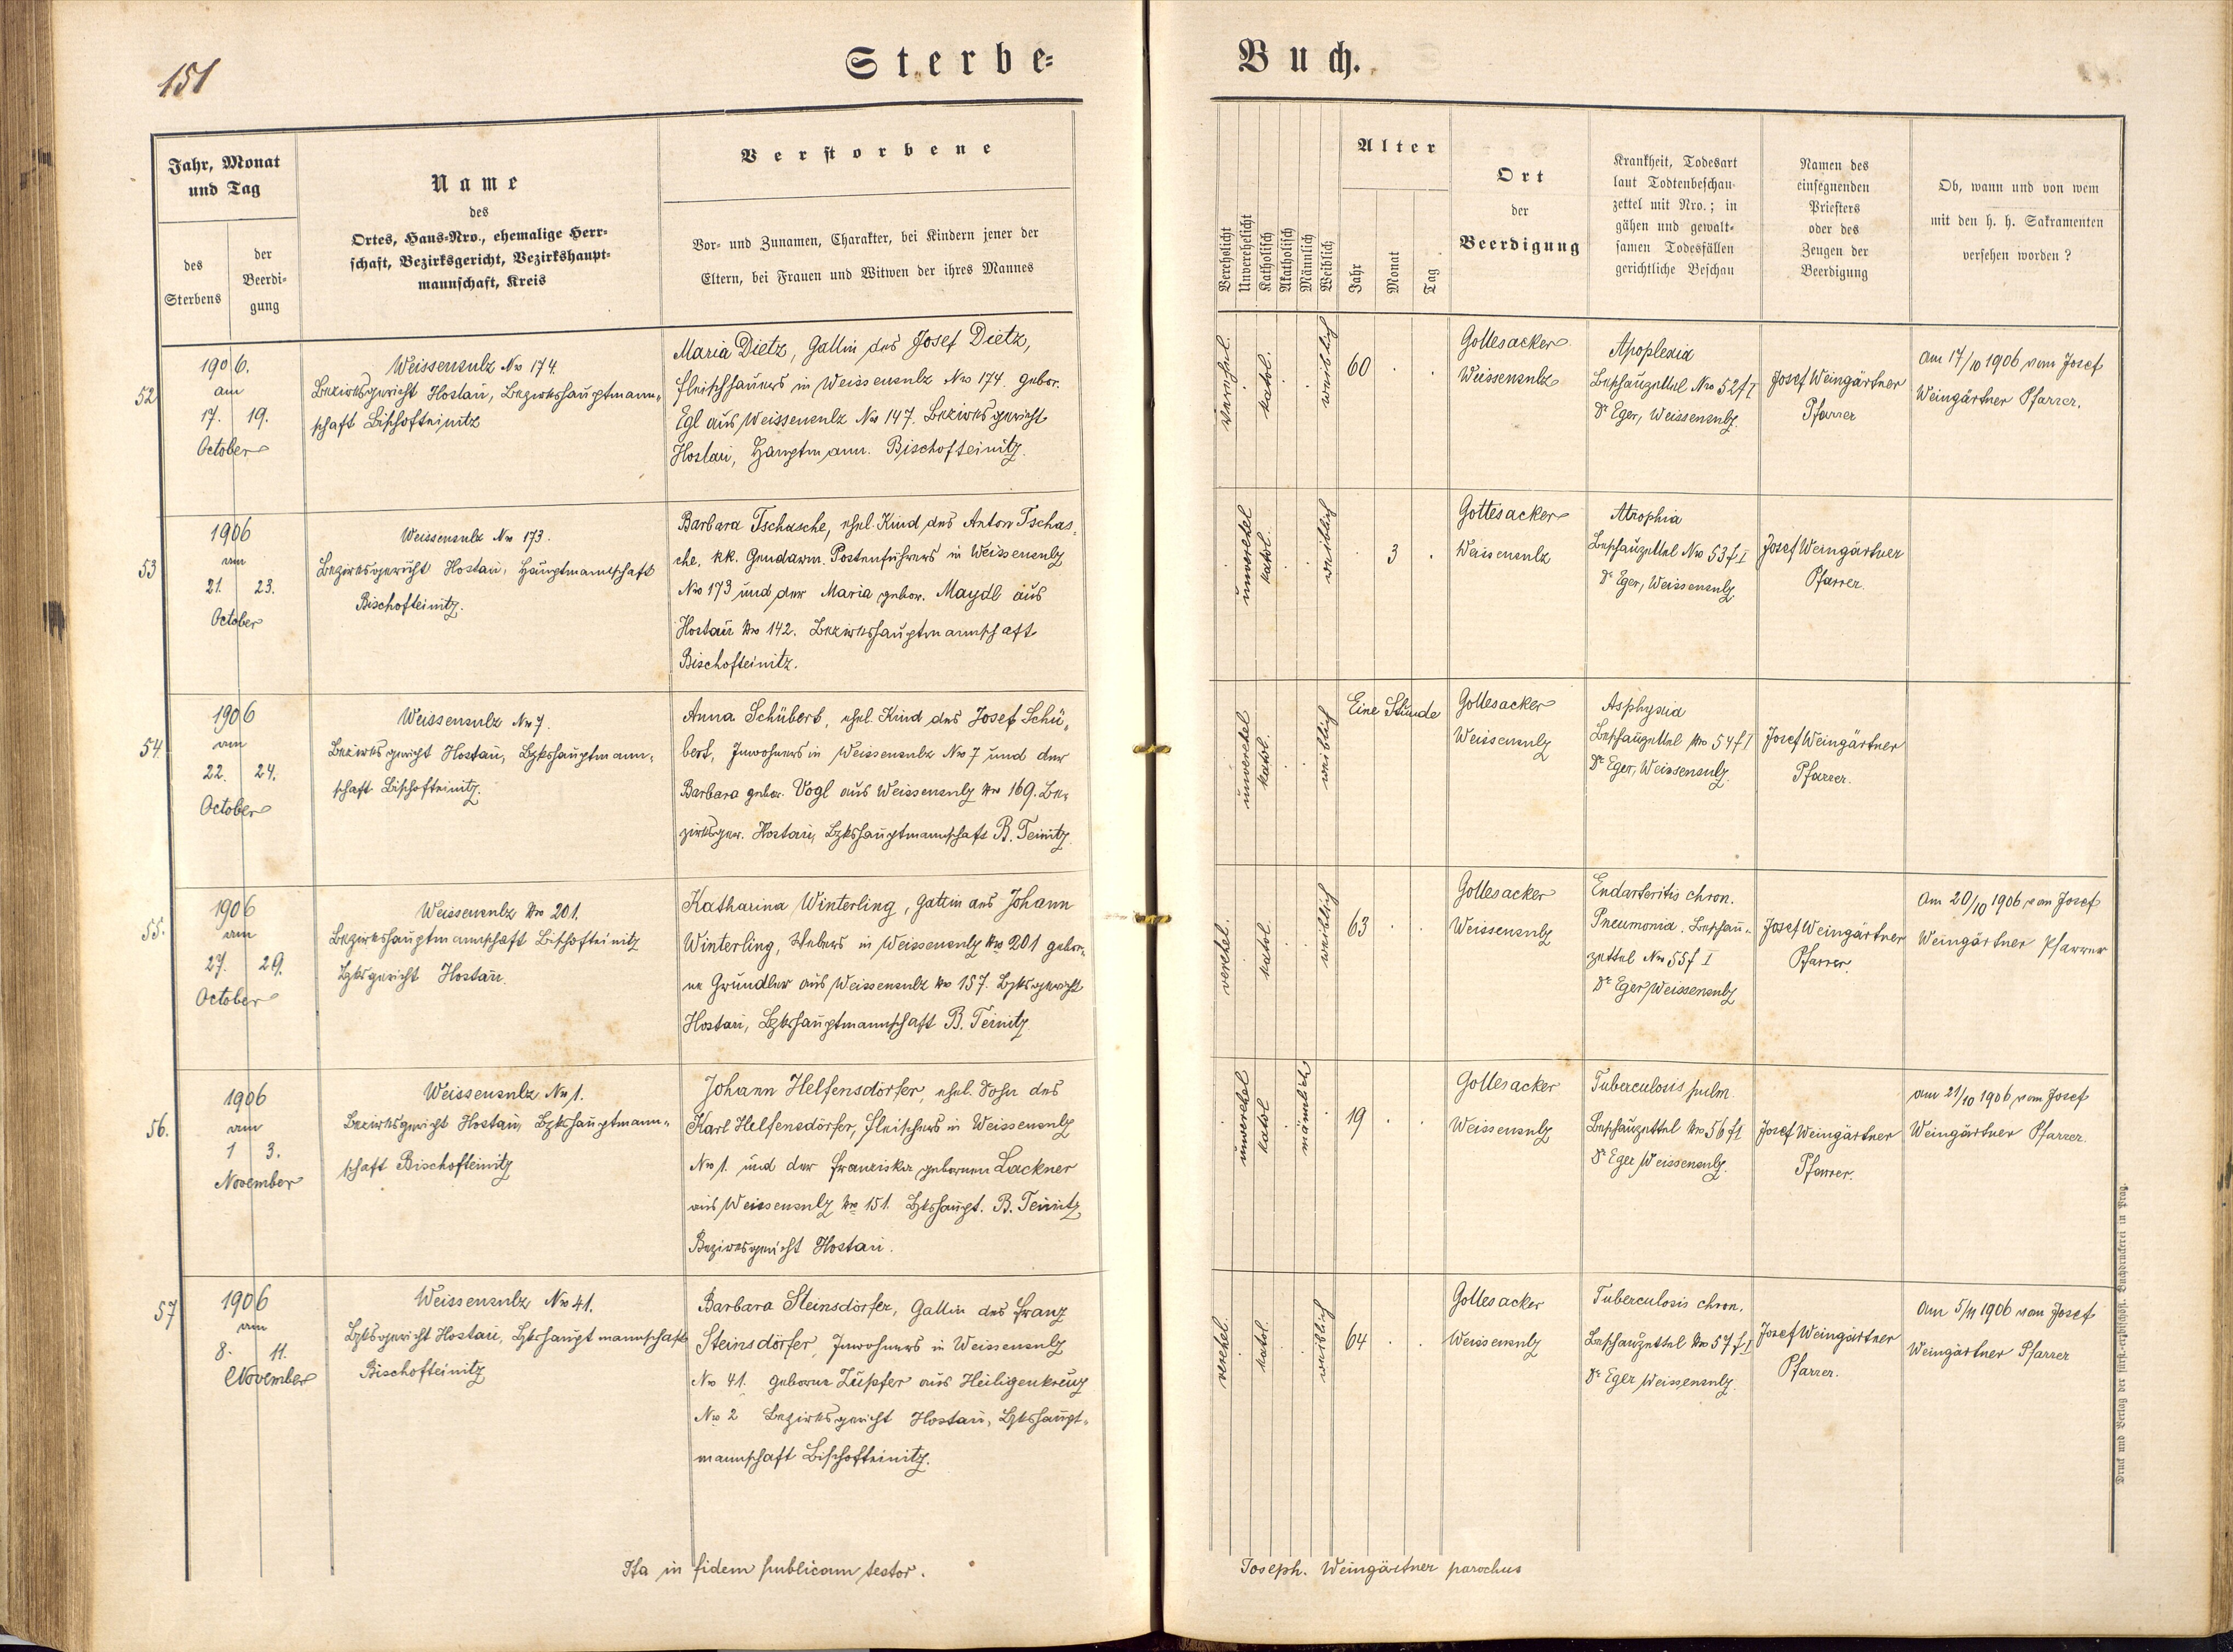 151
Sterbe=
Buch.
Jahr, Monat
und Tag
des
Sterbens
der
Beerdi-
gung
Name
des
Ortes, Haus-Nro., ehemalige Herr-
schaft, Bezirksgericht, Bezirkshaupt-
mannschaft, Kreis
Verstorbene
Vor- und Zunamen, Charakter, bei Kindern jener der
Eltern, bei Frauen und Witwen der ihres Mannes
Verehelicht
Unverehelicht
Katholisch
Akatholisch
Männlich
Weiblich
Alter
Jahr
Monat
Tag
Ort
der
Beerdigung
Krankheit, Todesart
laut Todtenbeschau-
zettel mit Nro.; in
gähen und gewalt-
samen Todesfällen
gerichtliche Beschau
Namen des
einsegnenden
Priesters
oder des
Zeugen der
Beerdigung
Ob, wann und von wem
mit den h. h. Sakramenten
versehen worden?
52
1906.
am
17. 19.
October
Weissensulz No 174.
Bezirksgericht Hostau, Bezirkshauptmann-
schaft Bischofteinitz
Maria Dietz, Gattin des Josef Dietz,
Fleischhauers in Weissensulz No 174. gebor.
Egl aus Weissensulz No 147. Bezirksgericht
Hostau, Hauptmann. Bischofteinitz.
verehel.
katol.
weiblich
60
Gottesacker
Weissensulz
Apoplexia
Beschauzettel No 52 f I
Dr Eger, Weissensulz.
Josef Weingärtner
Pfarrer
am 17/10 1906 vom Josef
Weingärtner Pfarrer.
53
1906
am
21. 23.
October
Weissensulz No 173.
Bezirksgericht Hostau, Hauptmannschaft
Bischofteinitz.
Barbara Tschasche, ehel. Kind des Anton Tschas-
che, kk. Gendarm. Postenführers in Weissensulz
No 173 und der Maria gebor. Maydl aus
Hostau No 142. Bezirkshauptmannschaft
Bischofteinitz.
unverehel
katol.
weiblich
3
Gottesacker
Weissensulz
Atrophia
Beschauzettel No 53 f I
Dr Eger, Weissensulz
Josef Weingärtner
Pfarrer.
54
1906
am
22. 24.
October
Weissensulz No 7.
Bezirksgericht Hostau, Bzkshauptmann-
schaft Bischofteinitz.
Anna Schübert, ehel. Kind des Josef Schü-
bert, Inwohners in Weissensulz No 7 und der
Barbara gebor. Vogl aus Weissensulz No 169. Be-
zirksger. Hostau, Bzkshauptmannschaft B. Teinitz.
unverehel
katol.
weiblich
Eine Stunde
Gottesacker
Weissensulz
Asphyxia
Beschauzettel No 54 f I
Dr Eger, Weissensulz.
Josef Weingärtner
Pfarrer.
55.
1906
am
27. 29.
October
Weissensulz No 201.
Bezirkshauptmannschaft Bischofteinitz
Bzksgericht Hostau.
Katharina Winterling, Gattin des Johann
Winterling, Webers in Weissensulz No 201 gebor-
ne Gründler aus Weissensulz No 157. Bzksgericht
Hostau, Bzkshauptmannschaft B. Teinitz.
verehel.
katol.
weiblich
63
Gottesacker
Weissensulz
Endarteritis chron.
Pneumonia. Beschau-
zettel No 55 f I
Dr Eger Weissensulz
Josef Weingärtner
Pfarrer.
am 20/10 1906 vom Josef
Weingärtner Pfarrer
56.
1906
am
1 3.
November
Weissensulz No 1.
Bezirksgericht Hostau, Bzkshauptmann-
schaft Bischofteinitz
Johann Helfensdörfer, ehel. Sohn des
Karl Helfensdörfer, Fleischers in Weissensulz
No 1. und der Franziska gebornen Lackner
aus Weissensulz No 151. Bzkshaupt. B. Teinitz
Bezirksgericht Hostau.
unverehel
katol
männlich
19
Gottesacker
Weissensulz
Tuberculosis pulm.
Beschauzettel No 56 f I
Dr Eger Weissensulz.
Josef Weingärtner
Pfarrer.
am 21/10 1906 vom Josef
Weingärtner Pfarrer.
57
1906
am
8. 11.
November
Weissensulz No 41.
Bzksgericht Hostau, Bzkshauptmannschaft
Bischofteinitz
Barbara Steinsdörfer, Gattin des Franz
Steinsdörfer, Inwohners in Weissensulz
No 41. geborne Züpfer aus Heiligenkreuz
No 2 Bezirksgericht Hostau, Bzkshaupt-
mannschaft Bischofteinitz.
verehel.
katol.
weiblich
64
Gottesacker
Weissensulz
Tuberculosis chron.
Beschauzettel No 57 f I
Dr Eger Weissensulz.
Josef Weingärtner
Pfarrer.
am 5/11 1906 vom Josef
Weingärtner Pfarrer
Ita in fidem publicam testor.
Joseph. Weingärtner parochus
Druck und Verlag der fürst-erzbischöfl. Buchdruckerei in Prag.